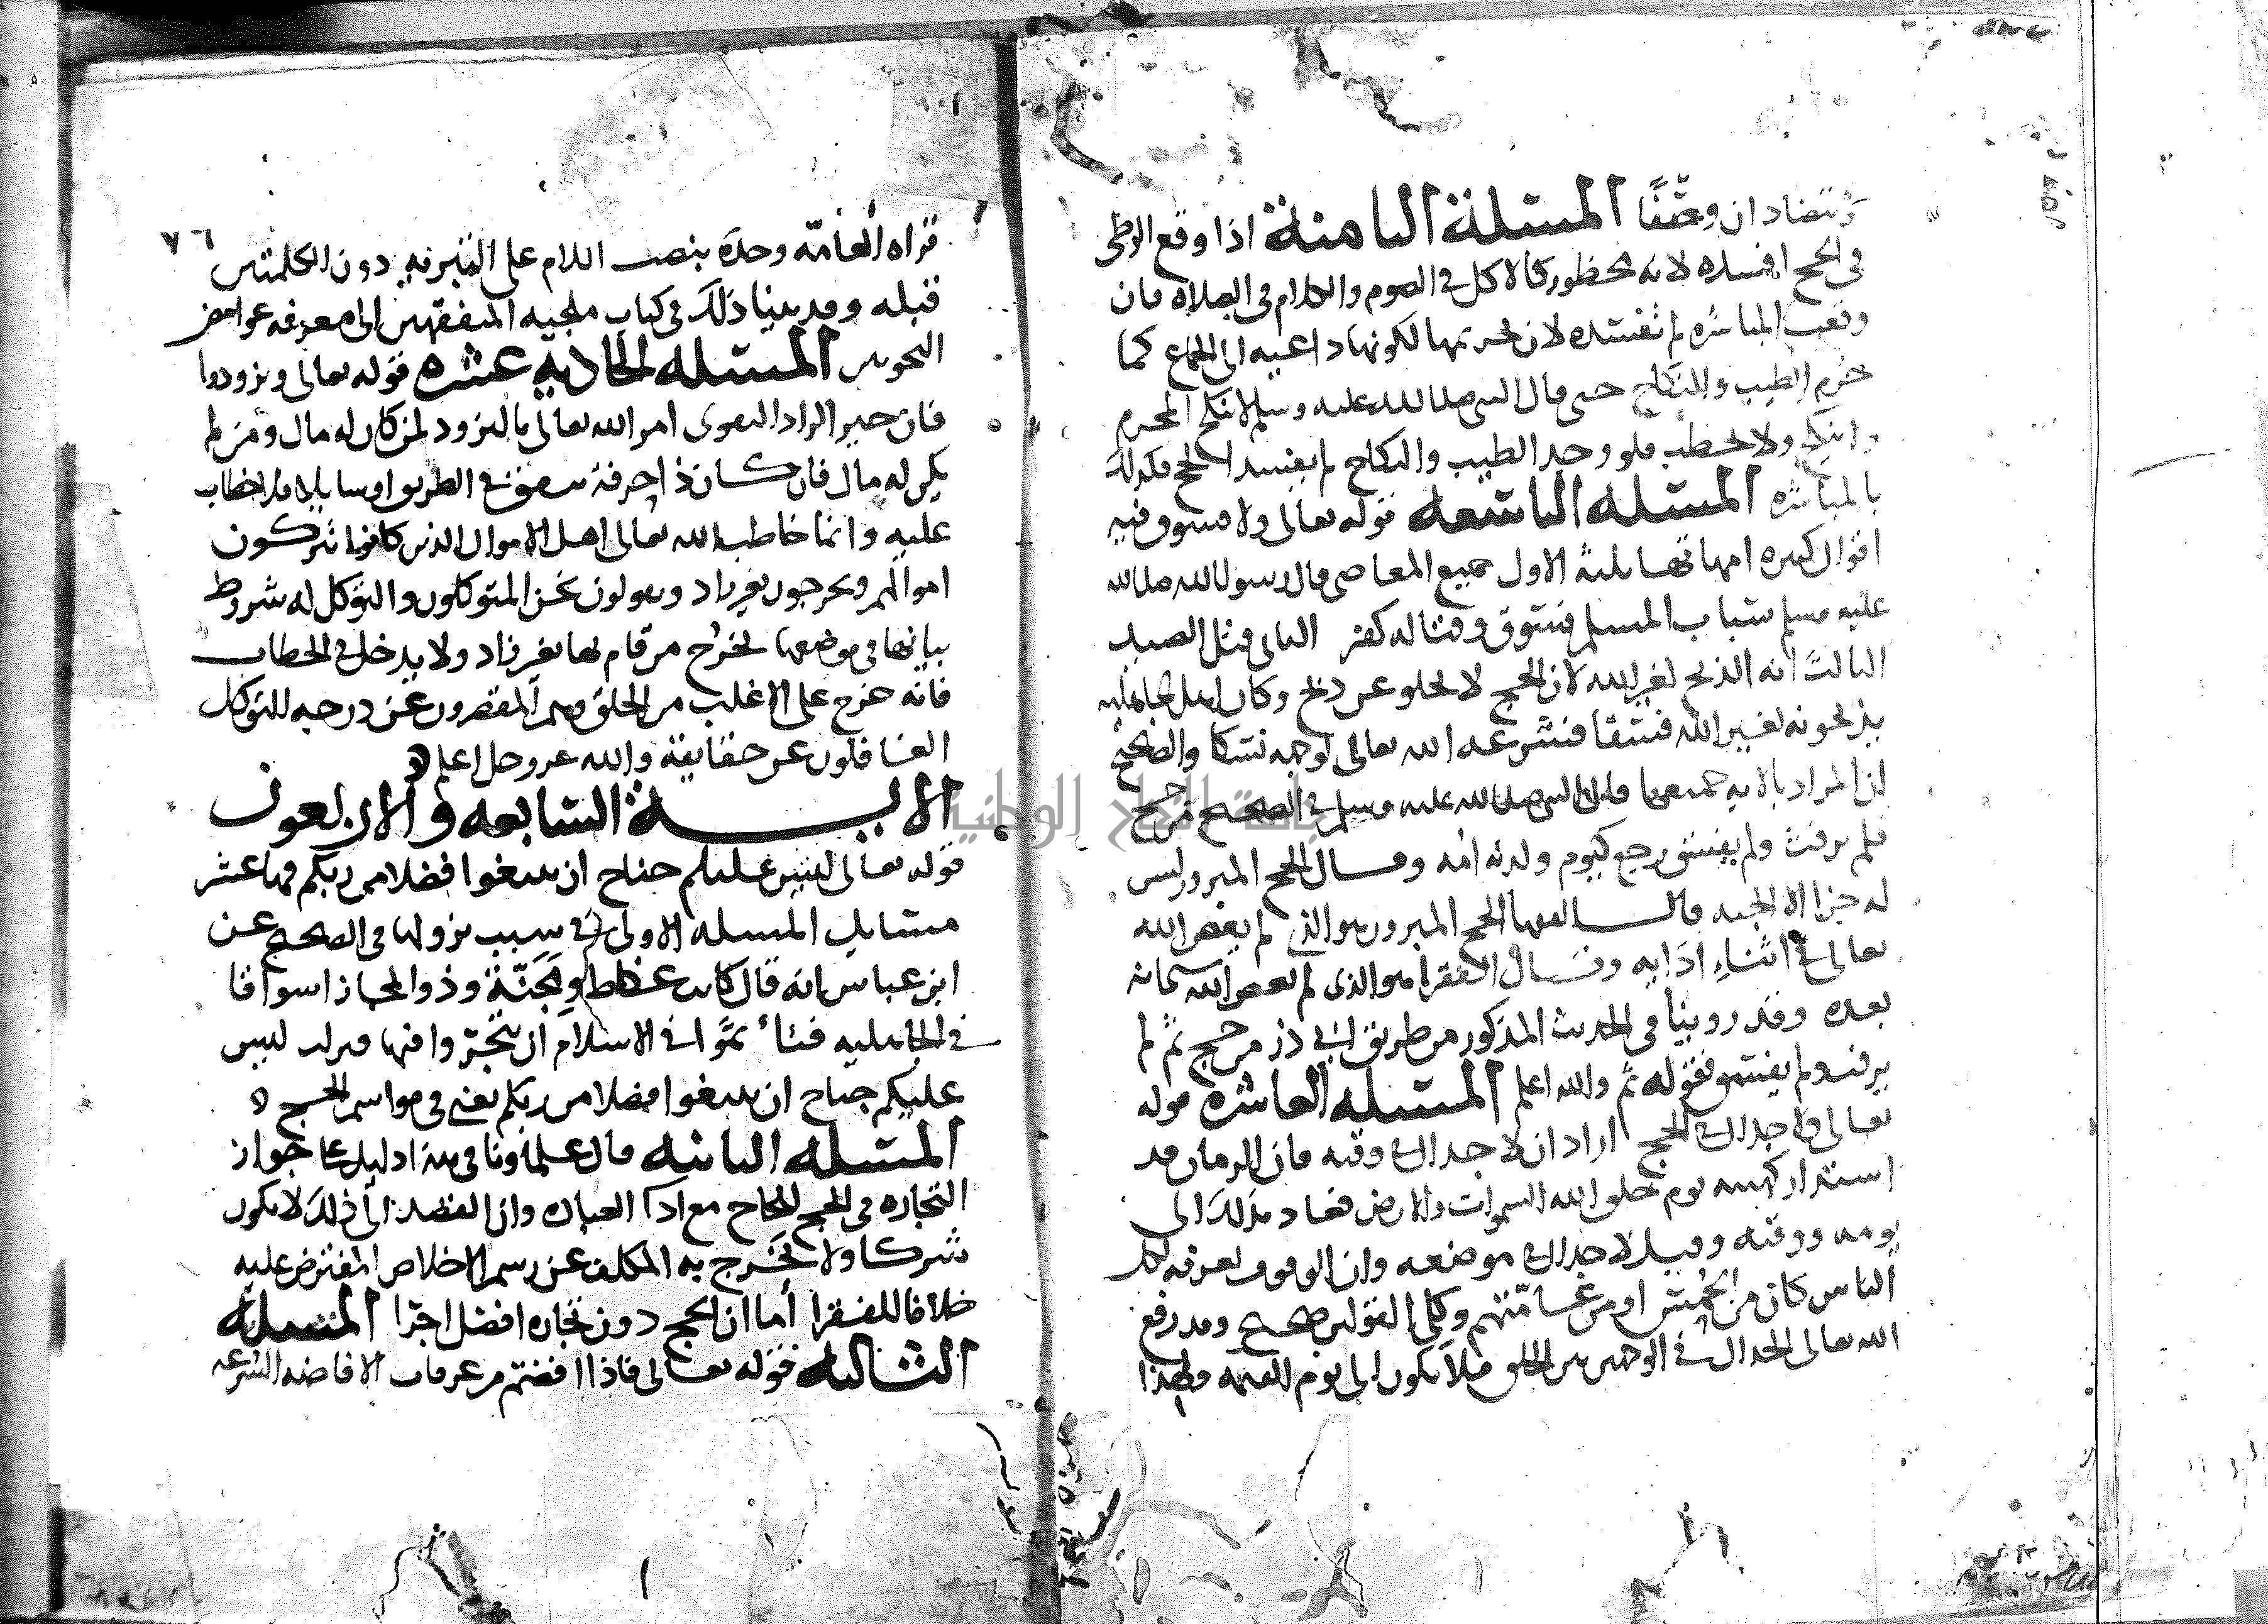 ويتضادان وصفا المسئلة الثامنة اذا وقع الوطئ
في الحج افسده لانه محظور كالاكل في الصوم والكلام في الصلاه فان
وقعت المباشره لم تفسده لان تحريمها لكونها داعيه الى الجماع كما
حرم الطيب والنكاح حتى قال النبي صلى الله عليه وسلم لا ينكح المحرم
ولا ينكح ولا يخطب فلو وجد الطيب والنكاح لم يفسد الحج فكذلك
بالمباشره المسئله التاسعه قوله تعالى ولا فسوق فيه
اقوال كثيره امهاتها ثلثة الاول جميع المعاصي قال رسول الله صلى الله
عليه وسلم سباب المسلم فسوق وقتاله كفر الثاني قتل الصيد
الثالث انه الذبح لغير الله لان الحج لا يخلو عن ذبح وكان اهل الجاهليه
يذبحونه لغير الله فسقا فشرعه الله تعالى لوجهه نسكا والصحيح
ان المراد بالايه جميعها قال النبي صلى الله عليه وسلم في الصحيح من حج
فلم يرفث ولم يفسق رجع كيوم ولدته امه وقال الحج المبرور ليس
له جزا الا الجنه قال الفقها الحج المبرور هو الذي لم يعص الله
تعالى في اثناء ادايه وقال الفقرا هو الذي لم يعص الله سبحانه
بعده وقد روينا في الحديث المذكور من طريق ابي ذر من حج ثم لم
يرفث ولم يفسق فقوله ثم والله اعلم المسئله العاشره قوله
تعالى ولا جدال في الحج اراد ان لا جدال في وقته فان الزمان قد
استدار كهيئته يوم خلق الله السموات والارض فعاد بذلك الى
يومه ووقته وقيل لا جدال في موضعه وان الوقوف بعرفه لكل
الناس كان من الحمس او من عامتهم وكلى القولين صحيح وقد رفع
الله تعالى الجدال في الوجهين بين الخلق فلا يكون الى يوم القيمه ولهذا
٧٦
قراه العامه وحده بنصب اللام على التبريه دون الكلمتين
قبله وقد بينا ذلك في كتاب ملجيه المتفقهين الى معرفه غوامض
النحويين المسئله الحاديه عشره قوله تعالى وتزودوا
فان خير الزاد التقوى امر الله تعالى بالتزود لمن كان له مال ومن لم
يكن له مال فان كان ذا حرفة تنفق في الطريق او سايلا فلا خطاب
عليه وانما خاطب الله تعالى اهل الاموال الذين كانوا يتركون
اموالهم ويخرجون بغير زاد ويقولون نحن المتوكلون والتوكل له شروط
بيانها في موضعها يخرج من قام بها بغير زاد ولا يدخل في الخطاب
فانه خرج على الاغلب من الخلق وهم المقصرون عن درجه التوكل
الغافلون عن حقايقه والله عز وجل اعلم
الايـــة السابعه والاربعون
قوله تعالى ليس عليكم جناح ان تبتغوا فضلا من ربكم فيها عشر
مسايل المسئله الاولى في سبب نزولها في الصحيح عن
ابن عباس انه قال كانت عكاظ ومجنة وذو المجاز اسواقا
في الجاهليه فتأثموا في الاسلام ان يتجروا فيها فنزلت ليس
عليكم جناح ان تبتغوا فضلا من ربكم يعني في مواسم الحج
المسئله الثانيه قال علماونا في هذا دليل على جواز
التجاره في الحج للحاج مع ادا العباده وان القصد الى ذلك لا يكون
شركا ولا يخرج به المكلف عن رسم الاخلاص المفترض عليه
خلافا للفقرا أما ان الحج دون تجاره افضل اجرا المسئله
الثالثه قوله تعالى فاذا افضتم من عرفات الافاضه السرعه
جامعة النجاح الوطنية